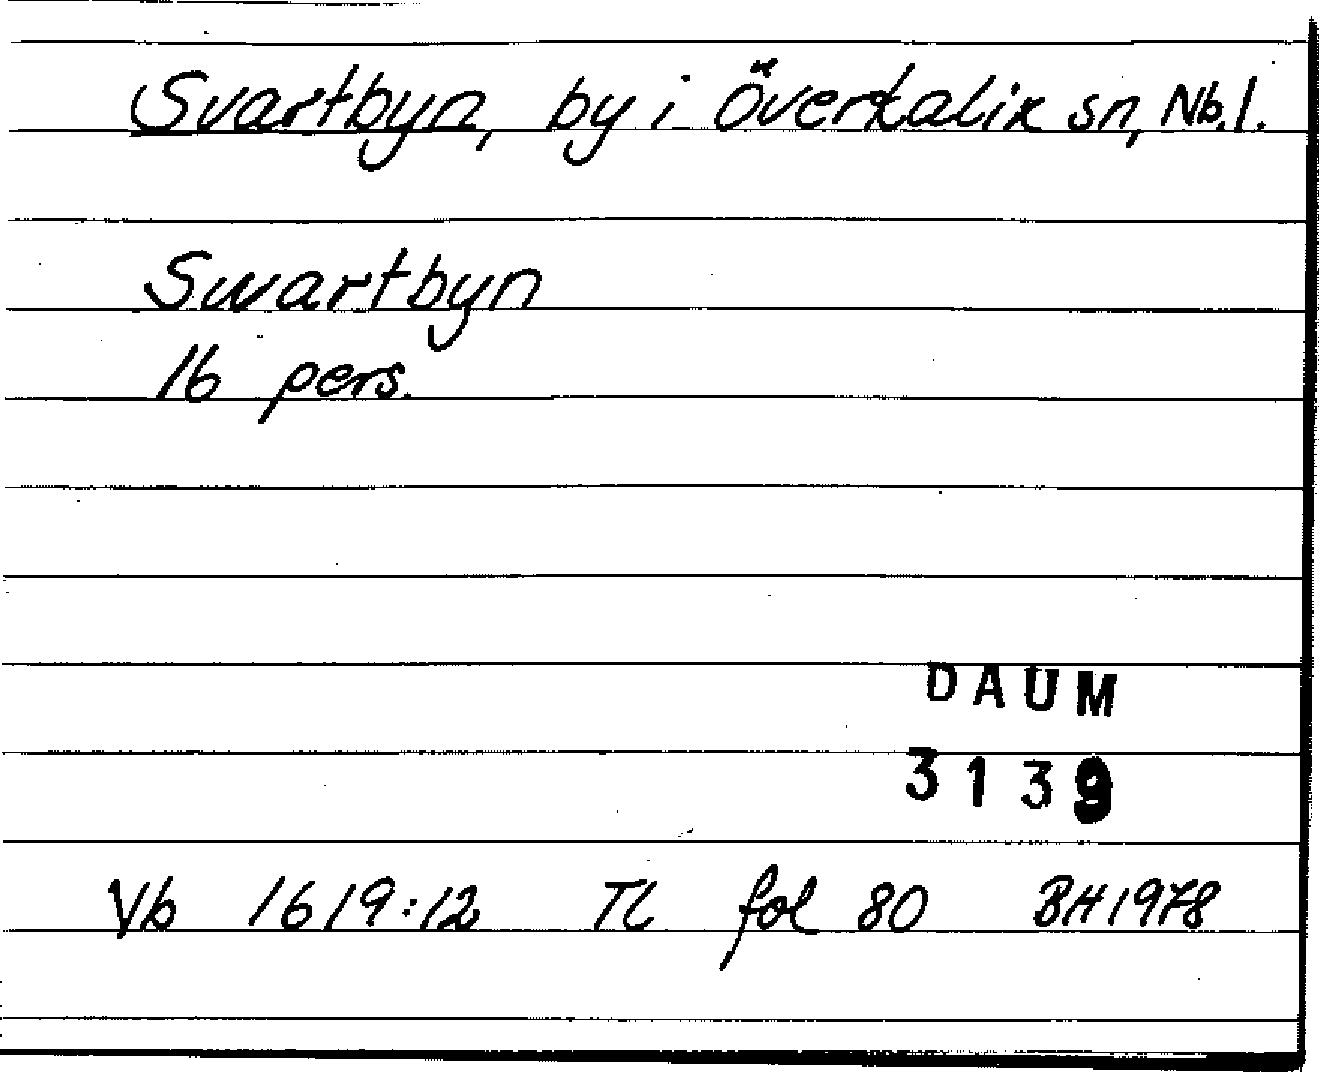 Svartbyn, by i Överkalix sn, Nb.l.
Swartbyn
16 pers.
DAUM
3139
Vb 1619:12 TL fol 80 BH1978